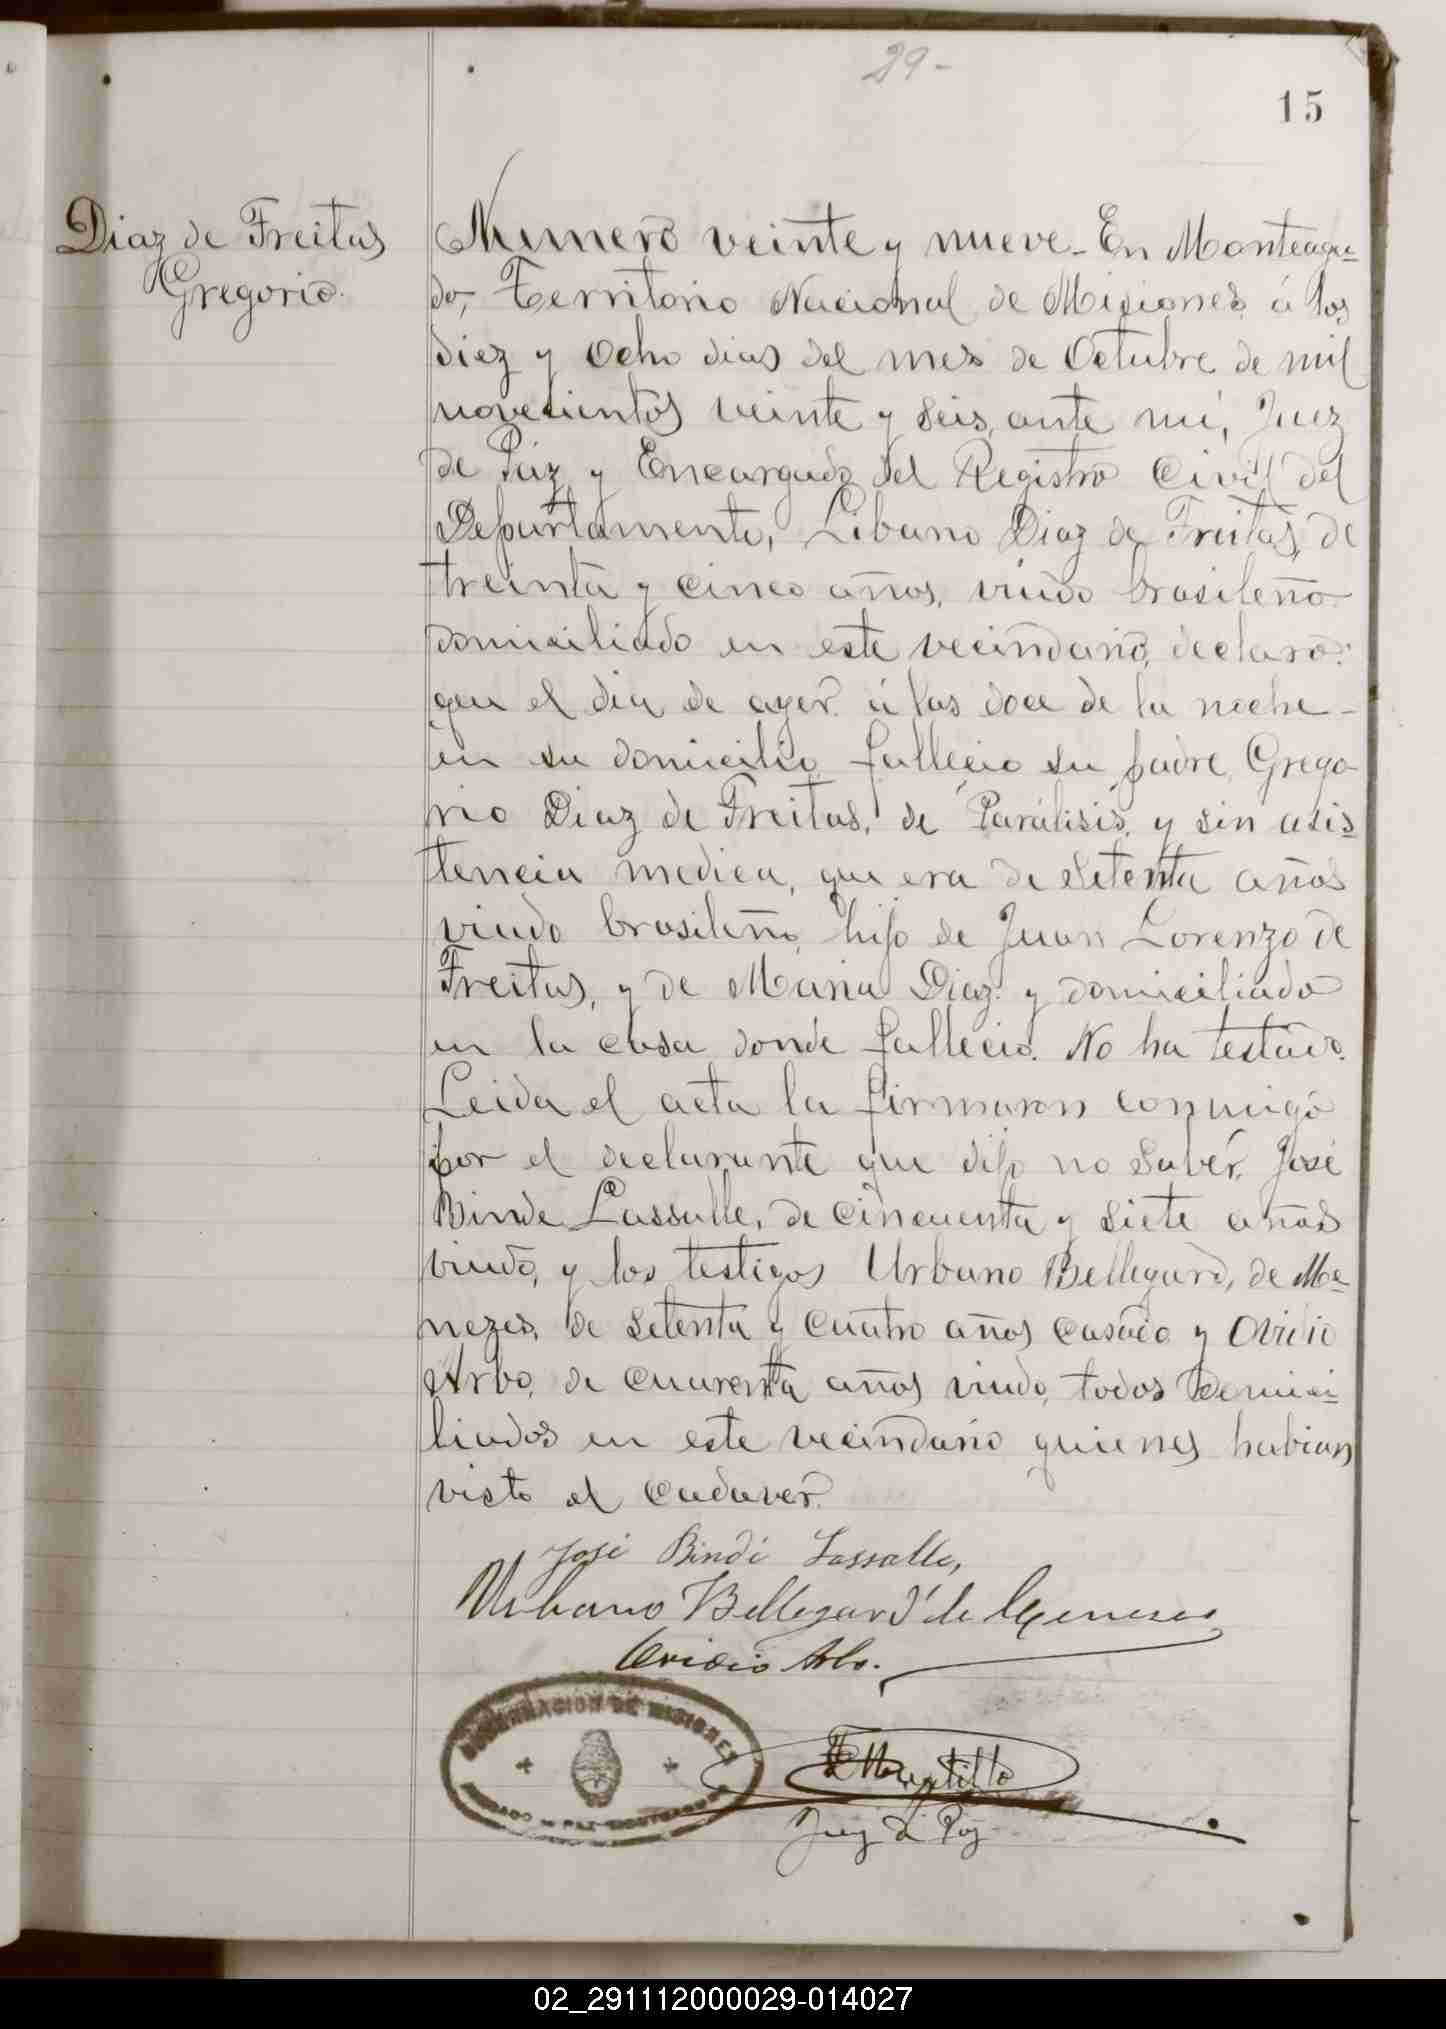 29-
15
Diaz de Freitas
Gregorio.
Numero veinte y nueve - En Monteagu=
do, Territorio Nacional de Misiones á los
diez y ocho dias del mes de Octubre de mil
novecientos veinte y seis, ante mi, Juez
de Paz y Encargado del Registro Civil del
Departamento, Libano Diaz de Freitas, de
treinta y cinco años, viudo brasileño
domiciliado en este vecindario, declaró:
que el dia de ayer á las doce de la noche -
en su domicilio fallecio su padre, Grego
rio Diaz de Freitas, de Parálisis, y sin asis=
tencia medica, que era de setenta años
viudo brasileño, hijo de Juan Lorenzo de
Freitas, y de Maria Diaz y domiciliado
en la casa donde fallecio. No ha testado.
Leida el acta la firmaron conmigo
por el declarante que dijo no saber, José
Binde Lassalle, de cincuenta y siete años
viudo, y los testigos Urbano Bellegard, de Me=
nezes, de setenta y cuatro años casado y Ovidio
Arbo, de cuarenta años viudo, todos domici=
liados en este vecindario quienes habian
visto el cadaver.
José Bindé Lassalle,
Urbano Bellegard de Menezes
Ovidio Arbo.
GOBERNACIÓN DE MISIONES
Juez de Paz
02_291112000029-014027